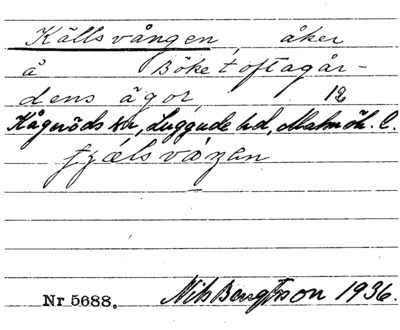 Källsvången, åker
å Böketoftagår-
dens ägor, 12
Kågeröds sn, Luggude hd, Malmöh. l.
Nr 5688. Nils Bengtsson 1936.